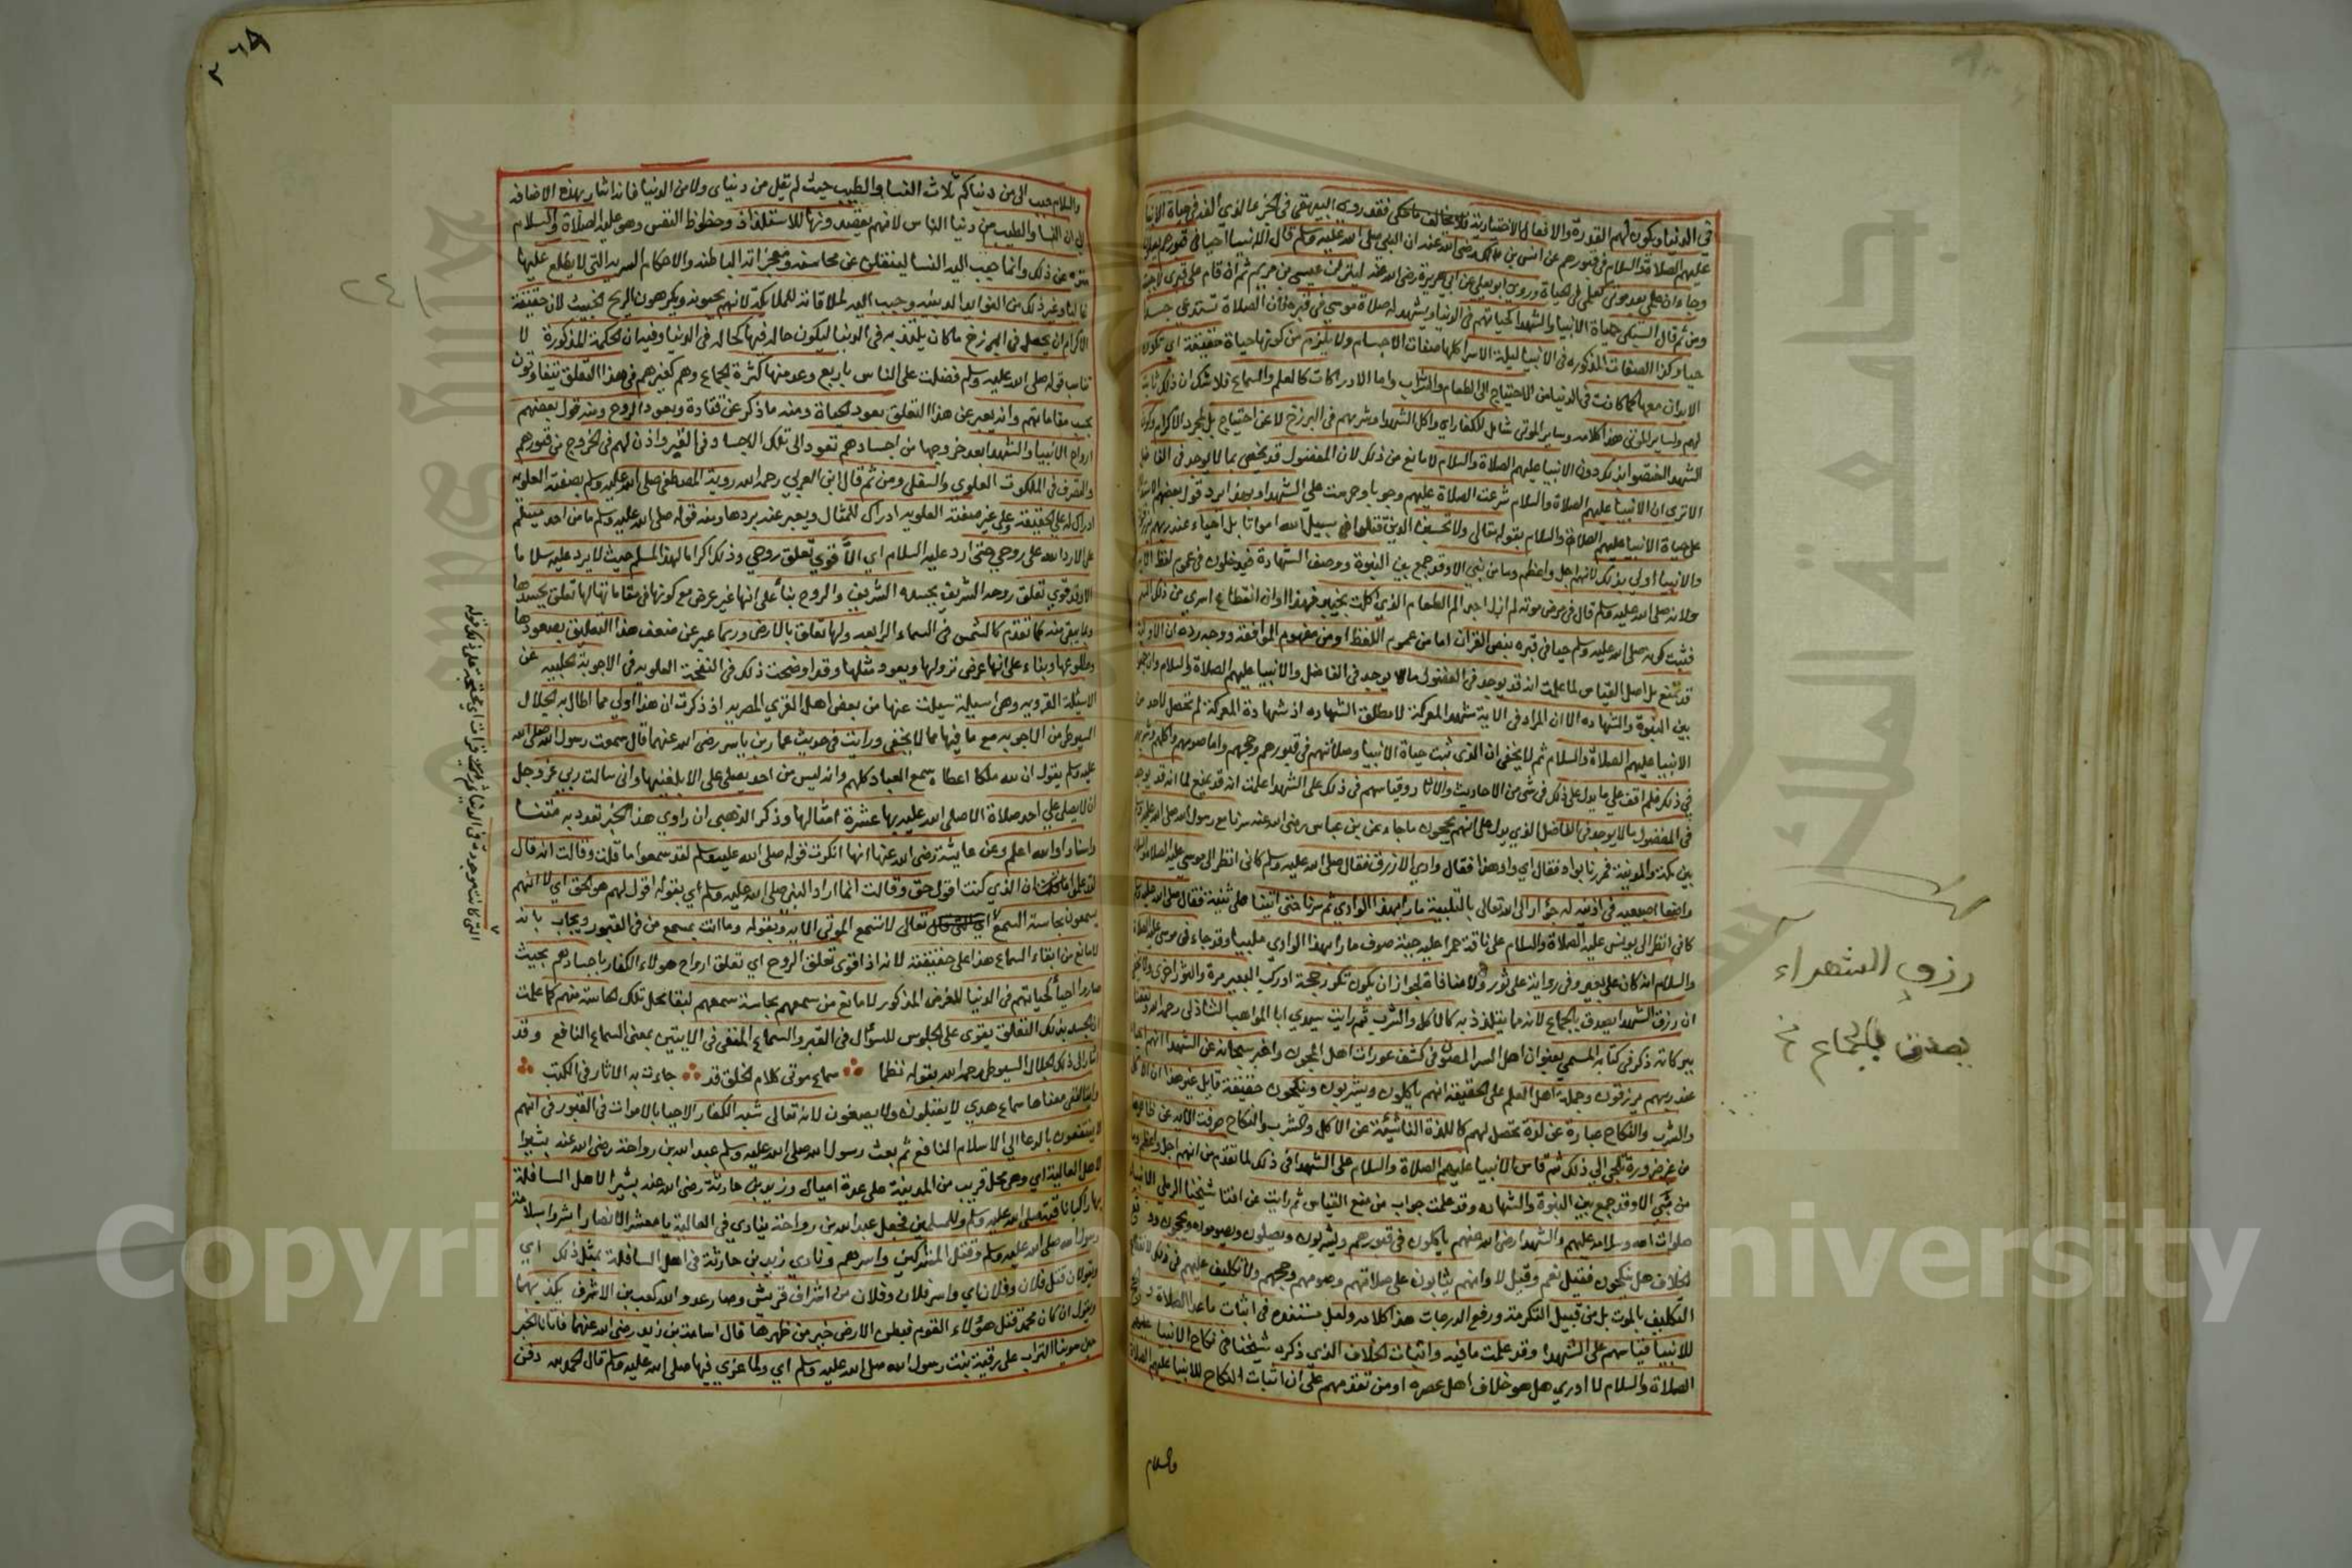 في الدنيا ويكون لهم القدرة والافعال الاختيارية فلا يخالف ما حكى فقد روى البيهقي في الجزء الذي الفه في حياة الانبيا
عليهم الصلاة والسلام في قبورهم عن انس بن مالك رضي الله عنه ان النبي صلى الله عليه وسلم قال الانبيا احيا في قبورهم يصلون
وجاء ان علمي بعد موتي كعلمي في الحياة وروى ابو يعلى عن ابي هريرة رضي الله عنه لينزلن عيسى بن مريم ثم ان قام على قبري لاجبته
ومن ثم قال السبكي حياة الانبيا والشهدا كحياتهم في الدنيا ويشهد له صلاة موسى في قبره فان الصلاة تستدعي جسدا
حيا وكذا الصفات المذكورة في الانبيا ليلة الاسرا كلها صفات الاجسام ولا يلزم من كونها حياة حقيقة ان تكون
الابدان معها كما كانت في الدنيا من الاحتياج الى الطعام والشراب واما الادراكات كالعلم والسماع فلا شك ان ذلك ثابت
لهم ولساير الموتى هذا كلامه وساير الموتى شامل للكفار اي واكل الشهدا وشربهم في البرزخ لا عن احتياج بل لمجرد الاكرام وكون
الشهدا اختصوا بذلك دون الانبيا عليهم الصلاة والسلام لا مانع من ذلك لان المفضول قد يختص بما لا يوجد في الفاضل
الا ترى ان الانبيا عليهم الصلاة والسلام شرعت الصلاة عليهم وجوبا وحرمت على الشهدا وبهذا يرد قول بعضهم
على حياة الانبيا عليهم الصلاة والسلام بقوله تعالى ولا تحسبن الذين قتلوا في سبيل الله امواتا بل احياء عند ربهم يرزقون
والانبيا اولى بذلك لانهم اجل واعظم وما من نبي الا وقد جمع بين النبوة ووصف الشهادة فيدخلون في عموم لفظ الاية
ولانه صلى الله عليه وسلم قال في مرض موته لم ازل اجد الم الطعام الذي اكلت بخيبر فهذا اوان انقطاع ابهري من ذلك السم
فثبت كونه صلى الله عليه وسلم حيا في قبره بنص القران اما من عموم اللفظ او من مفهوم الموافقة ووجه رده ان الاولوية
قد تمنع بل اصل القياس لما علمت انه قد يوجد في المفضول ما لا يوجد في الفاضل والانبيا عليهم الصلاة والسلام وان جمعوا
بين النبوة والشهادة الا ان المراد في الاية شهدا المعركة لا مطلق الشهادة اذ شهادة المعركة لم تحصل لاحد من
الانبيا عليهم الصلاة والسلام ثم لا يخفى ان الذي ثبت حياة الانبيا وصلاتهم في قبورهم وحجهم واما صومهم واكلهم وشربهم
في ذلك فلم اقف على ما يدل على ذلك في شي من الاحاديث والاثار وقياسهم في ذلك على الشهدا علمت انه قد يمنع لما انه قد يوجد
في المفضول ما لا يوجد في الفاضل الذي يدل على انهم يحجون ما جاء عن بن عباس رضي الله عنه سرنا مع رسول الله صلى الله عليه وسلم
بين مكة والمدينة فمررنا بواد فقال اي واد هذا فقال وادي الازرق فقال صلى الله عليه وسلم كاني انظر الى موسى عليه الصلاة والسلام
واضعا اصبعيه في اذنيه له جؤار الى الله تعالى بالتلبية مارا بهذا الوادي ثم سرنا حتى اتينا على ثنية فقال صلى الله عليه وسلم
كاني انظر الى يونس عليه الصلاة والسلام على ناقة حمرا عليه جبة صوف مارا بهذا الوادي ملبيا وقد جاء في موسى عليه الصلاة
والسلام انه كان على بعير وفي رواية على ثور ولا منافاة لجواز ان يكون تكرر حجه او ركب البعير مرة والثور اخرى
ان رزق الشهدا يصدق بالجماع لانه مما يتلذذ به كالاكل والشرب ثم رايت سيدي ابا المواهب الشاذلي رحمه الله
ببركاته ذكر في كتابه المسمى بعنوان اهل السر المصون في كشف عورات اهل المجون واخبر سبحانه عن الشهدا انهم احيا
عند ربهم يرزقون وجملة اهل العلم على الحقيقة انهم ياكلون ويشربون وينكحون حقيقة قايل غير هذا ان الاكل
والشرب والنكاح عبارة عن لذة تحصل لهم كاللذة الناشئة عن الاكل والشرب والنكاح صرفت الاية عن ظاهرها
من غير ضرورة تلجي الى ذلك ثم قاس الانبيا عليهم الصلاة والسلام على الشهدا في ذلك لما تقدم من انهم اجل واعظم وما
من نبي الا وقد جمع بين النبوة والشهادة وقد علمت جواب من منع القياس ثم رايت عن افتا شيخنا الرملي الانبيا
صلوات الله وسلامه عليهم والشهدا رضي الله عنهم ياكلون في قبورهم ويشربون ويصلون ويصومون ويحجون
الخلاف هل ينكحون فقيل نعم وقيل لا وانهم يثابون على صلاتهم وصومهم وحجهم ولا تكليف عليهم في ذلك لانقطاع
التكليف بالموت بل من قبيل التكرمة ورفع الدرجات هذا كلامه ولعل مستنده في اثبات ما عدا الصلاة
للانبيا قياسهم على الشهدا وقد علمت ما فيه واثبات الخلاف الذي ذكره شيخنا في نكاح الانبيا عليهم
الصلاة والسلام لا ادري هل هو خلاف اهل عصره او من تقدمهم على ان اثبات النكاح للانبيا عليهم الصلاة
والسلام
رزق الشهداء
يصدق بالجماع
والسلام حبب الي من دنياكم ثلاث النسا والطيب حيث لم يقل من دنياي ولا من الدنيا فانه اشار بهذه الاضافة
الى ان النسا والطيب من دنيا الناس لانهم يقصدونها للاستلذاذ وحظوظ النفس وهو عليه الصلاة والسلام
منزه عن ذلك وانما حبب اليه النسا لينقلن عنه محاسنه ومعجزاته الباطنة والاحكام السرية التي لا يطلع عليها
غالبا وغير ذلك من الفوايد الدينية وحبب اليه لملاقاته للملايكة لانهم يحبونه ويكرهون الريح الخبيث لان حقيقة
الاكرام ان يحصل في البرزخ ما كان يتلذذ به في الدنيا ليكون حاله فيها كحاله في الدنيا وفيه ان الحكمة المذكورة لا
تناسب قوله صلى الله عليه وسلم فضلت على الناس باربع وعد منها كثرة الجماع وهم كغيرهم في هذا التعلق يتفاوتون
بحسب مقاماتهم وانه يعبر عن هذا التعلق بعود الحياة ومنه ما ذكر عن قتادة وبعود الروح ومنه قول بعضهم
ارواح الانبيا والشهدا بعد خروجها من اجسادهم تعود الى تلك الاجساد في القبر واذن لهم في الخروج من قبورهم
والتصرف في الملكوت العلوي والسفلي ومن ثم قال ابن العربي رحمه الله رؤية المصطفى صلى الله عليه وسلم بصفته العلوية
ادراك له على الحقيقة وعلى غير صفته العلوية ادراك للمثال ويعبر عنه بردها ومنه قوله صلى الله عليه وسلم ما من احد يسلم
علي الا رد الله علي روحي حتى ارد عليه السلام اي الا قوي تعلق روحي وذلك اكراما لهذا المسلم حيث لا يرد عليه سلاما
الا وقد قوي تعلق روحه الشريف بجسده الشريف والروح بناء على انها غير عرض مع كونها في مقامها لها تعلق بجسدها
وبما يبقى منه كما تقدم كالشمس في السماء الرابعة ولها تعلق بالارض وربما عبر عن ضعف هذا التعلق بصعودها
وطلوعها وبناء على انها عرض تزولها ويعود مثلها وقد اوضحت ذلك في النفحة العلوية في الاجوبة الحلبية عن
الاسئلة القروية وهي اسيلة سيلت عنها من بعض اهل القرى المصرية اذ ذكرت ان هذا اولى مما اطال به الجلال
السيوطي من الاجوبة مع ما فيها مما لا يخفى ورايت في حديث عمار بن ياسر رضي الله عنهما قال سمعت رسول الله صلى الله
عليه وسلم يقول ان لله ملكا اعطاه سمع العباد كلهم وانه ليس من احد يصلي علي الا بلغنيها واني سالت ربي عز وجل
ان لا يصلي علي احد صلاة الا صلى الله عليه بها عشرة امثالها وذكر الذهبي ان راوي هذا الخبر تفرد به متنا
واسنادا والله اعلم وعن عايشة رضي الله عنها انها انكرت قوله صلى الله عليه وسلم لقد سمعوا ما قلت وقالت انه قال
لقد علموا ان الذي كنت اقول حق وقالت انما اراد النبي صلى الله عليه وسلم اي بقوله اقول لهم هو الحق اي لا انهم
يسمعون بحاسة السمع تعالى لا تسمع الموتى الاية وبقوله وما انت بمسمع من في القبور ويجاب بانه
لا مانع من ابقاء السماع هذا على حقيقته لانه اذا قوي تعلق الروح اي تعلق ارواح هولاء الكفار باجسادهم بحيث
صاروا احياء كحياتهم في الدنيا للغرض المذكور لا مانع من سمعهم بحاسة سمعهم لبقا محل تلك الحاسة منهم كما علمت
ان الجسد بذلك التعلق يقوى على الجلوس للسؤال في القبر والسماع المنفي في الايتين بمعنى السماع النافع وقد
اشار الى ذلك الجلال السيوطي رحمه الله بقوله نظما سماع موتى كلام الخلق قد جاءت به الاثار في الكتب
واية النفي معناها سماع هدى لا يقبلون ولا يصغون لانه تعالى شبه الكفار الاحيا بالاموات في القبور في انهم
لا ينتفعون بالدعا الى الاسلام النافع ثم بعث رسول الله صلى الله عليه وسلم عبد الله بن رواحة رضي الله عنه بشيرا
لاهل العالية اي وهي محل قريب من المدينة على عدة اميال وزيد بن حارثة رضي الله عنه بشيرا لاهل السافلة
صلى الله عليه وسلم وللمسلمين فجعل عبد الله بن رواحة ينادي في العالية يا معشر الانصار ابشروا بسلامة
رسول الله صلى الله عليه وسلم وقتل المشركين واسرهم ونادى زيد بن حارثة في اهل السافلة بمثل ذلك اي
ويقولان قتل فلان وفلان اي واسر فلان وفلان من اشراف قريش وصار عدو الله كعب بن الاشرف يكذبهما
ويقول ان كان محمد قتل هؤلاء القوم فبطن الارض خير من ظهرها قال اسامة بن زيد رضي الله عنهما فاتانا الخبر
حين سوينا التراب على رقية بنت رسول الله صلى الله عليه وسلم اي ولما عزي فيها صلى الله عليه وسلم قال الحمد لله دفن
التي كانت موجودة في الدنيا
٢٤١
Copyright University
جامعة الملك سعود